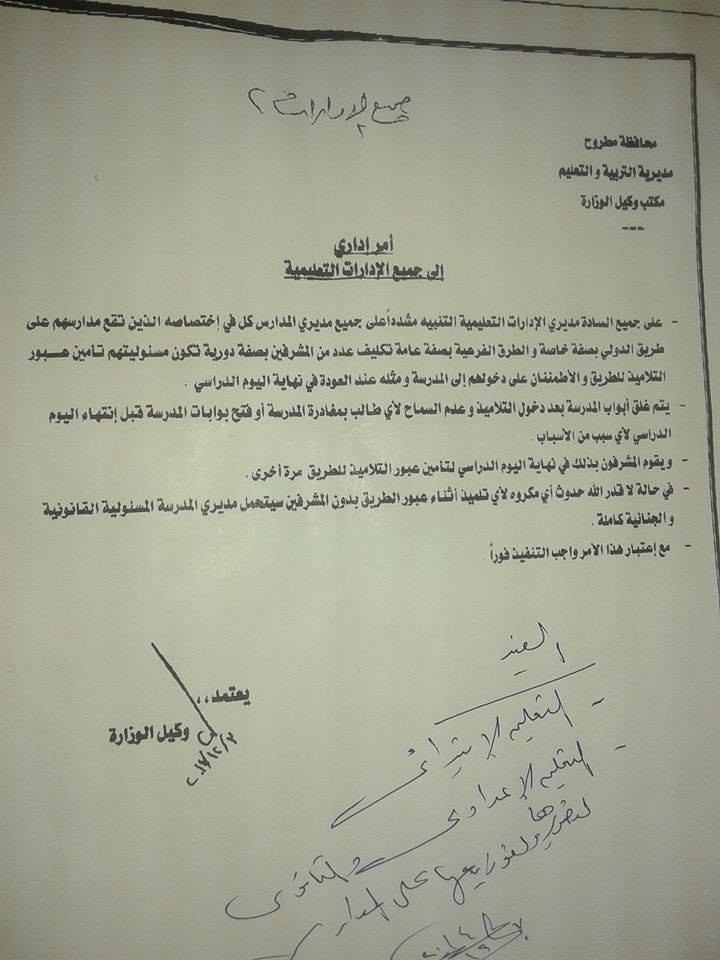 جميع الإدارات
محافظة مطروح
مديرية التربية والتعليم
مكتب وكيل الوزارة
---
أمر إداري
إلى جميع الإدارات التعليمية
- على جميع السادة مديري الإدارات التعليمية التنبيه مشدداً على جميع مديري المدارس كل في إختصاصه الذين تقع مدارسهم على
طريق الدولي بصفة خاصة و الطرق الفرعية بصفة عامة تكليف عدد من المشرفين بصفة دورية تكون مسئوليتهم تأمين عبور
التلاميذ للطريق و الأطمئنان على دخولهم إلى المدرسة و مثله عند العودة في نهاية اليوم الدراسي .
- يتم غلق أبواب المدرسة بعد دخول التلاميذ و عدم السماح لأي طالب بمغادرة المدرسة أو فتح بوابات المدرسة قبل إنتهاء اليوم
الدراسي لأي سبب من الأسباب .
- و يقوم المشرفون بذلك في نهاية اليوم الدراسي لتأمين عبور التلاميذ للطريق مرة أخرى .
- في حالة لا قدر الله حدوث أي مكروه لأي تلميذ أثناء عبور الطريق بدون المشرفين سيتحمل مديري المدرسة المسئولية القانونية
و الجنائية كاملة .
- مع إعتبار هذا الأمر واجب التنفيذ فوراً .
يعتمد،،
وكيل الوزارة
السيد
- التعليم الإبتدائى
- التعليم الإعدادى والثانوى
على المدارس